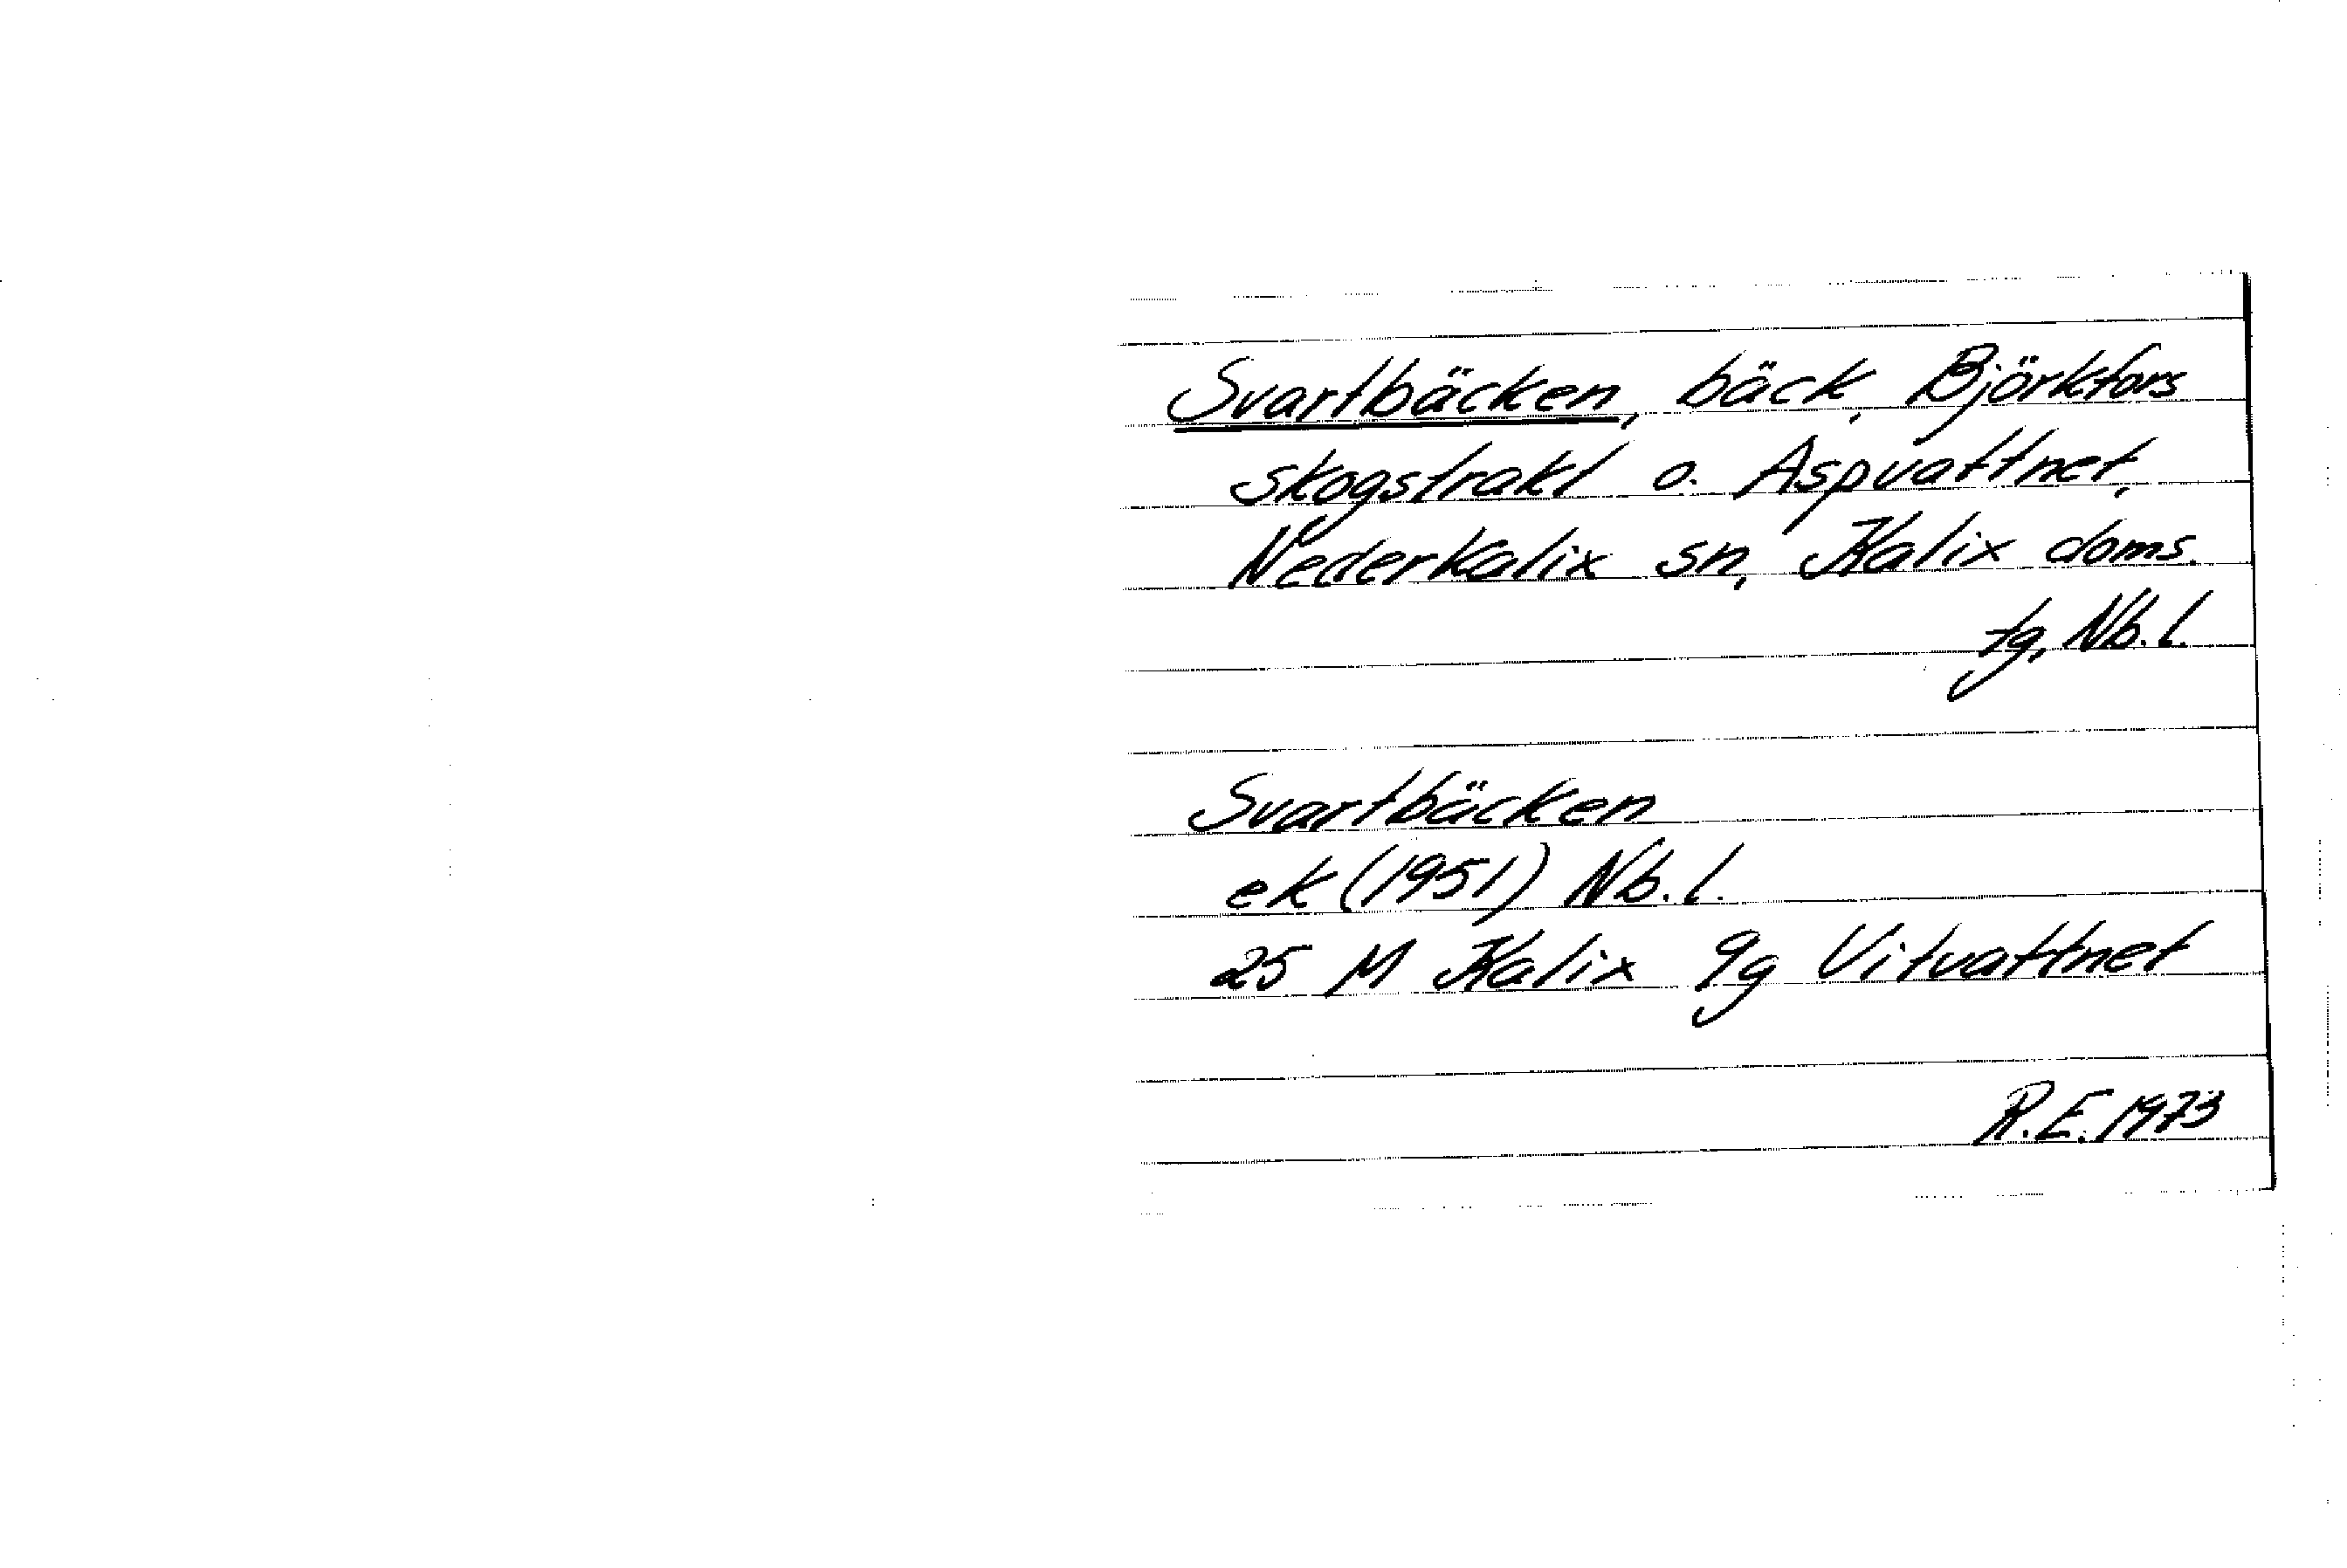 Svartbäcken, bäck, Björkfors
skogstrakt o. Aspvattnet,
Nederkalix sn, Kalix doms.
tg, Nb.l.
Svartbäcken
ek (1951) Nb.l.
25 M Kalix 9g Vitvattnet
R.E. 1973